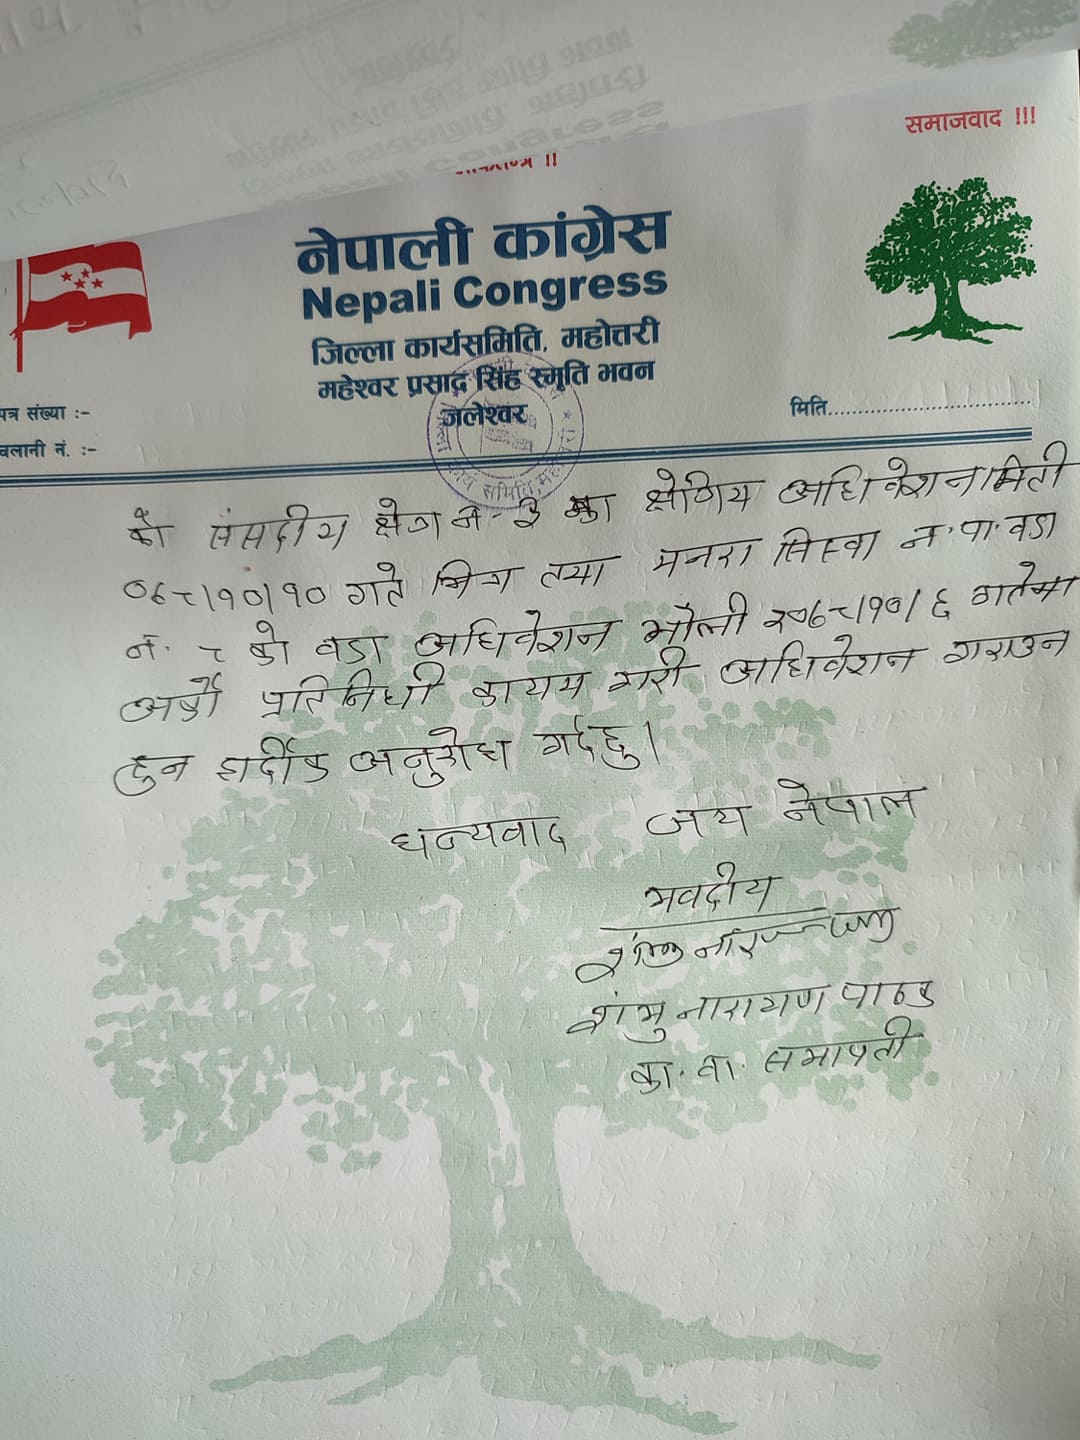 समाजवाद !!!
नेपाली कांग्रेस
Nepali Congress
जिल्ला कार्यसमिति, महोत्तरी
महेश्वर प्रसाद सिंह स्मृति भवन
जलेश्वर
पत्र संख्या :-
चलानी नं. :-
मिति
को संसदीय क्षेत्र नं- ३ का क्षेत्रिय अधिवेशन मिती
०७८।१०।१० गते भित्र तथा मनरा सिस्वा न.पा. वडा
नं. ८ को वडा अधिवेशन भोली २०७८।१०।६ गतेमा
अर्को प्रतिनिधी कायम गरी अधिवेशन गराउन
हुन हार्दीक अनुरोध गर्दछु।
धन्यवाद जय नेपाल
भवदीय
शंभु नारायण पाठक
का. वा. सभापती